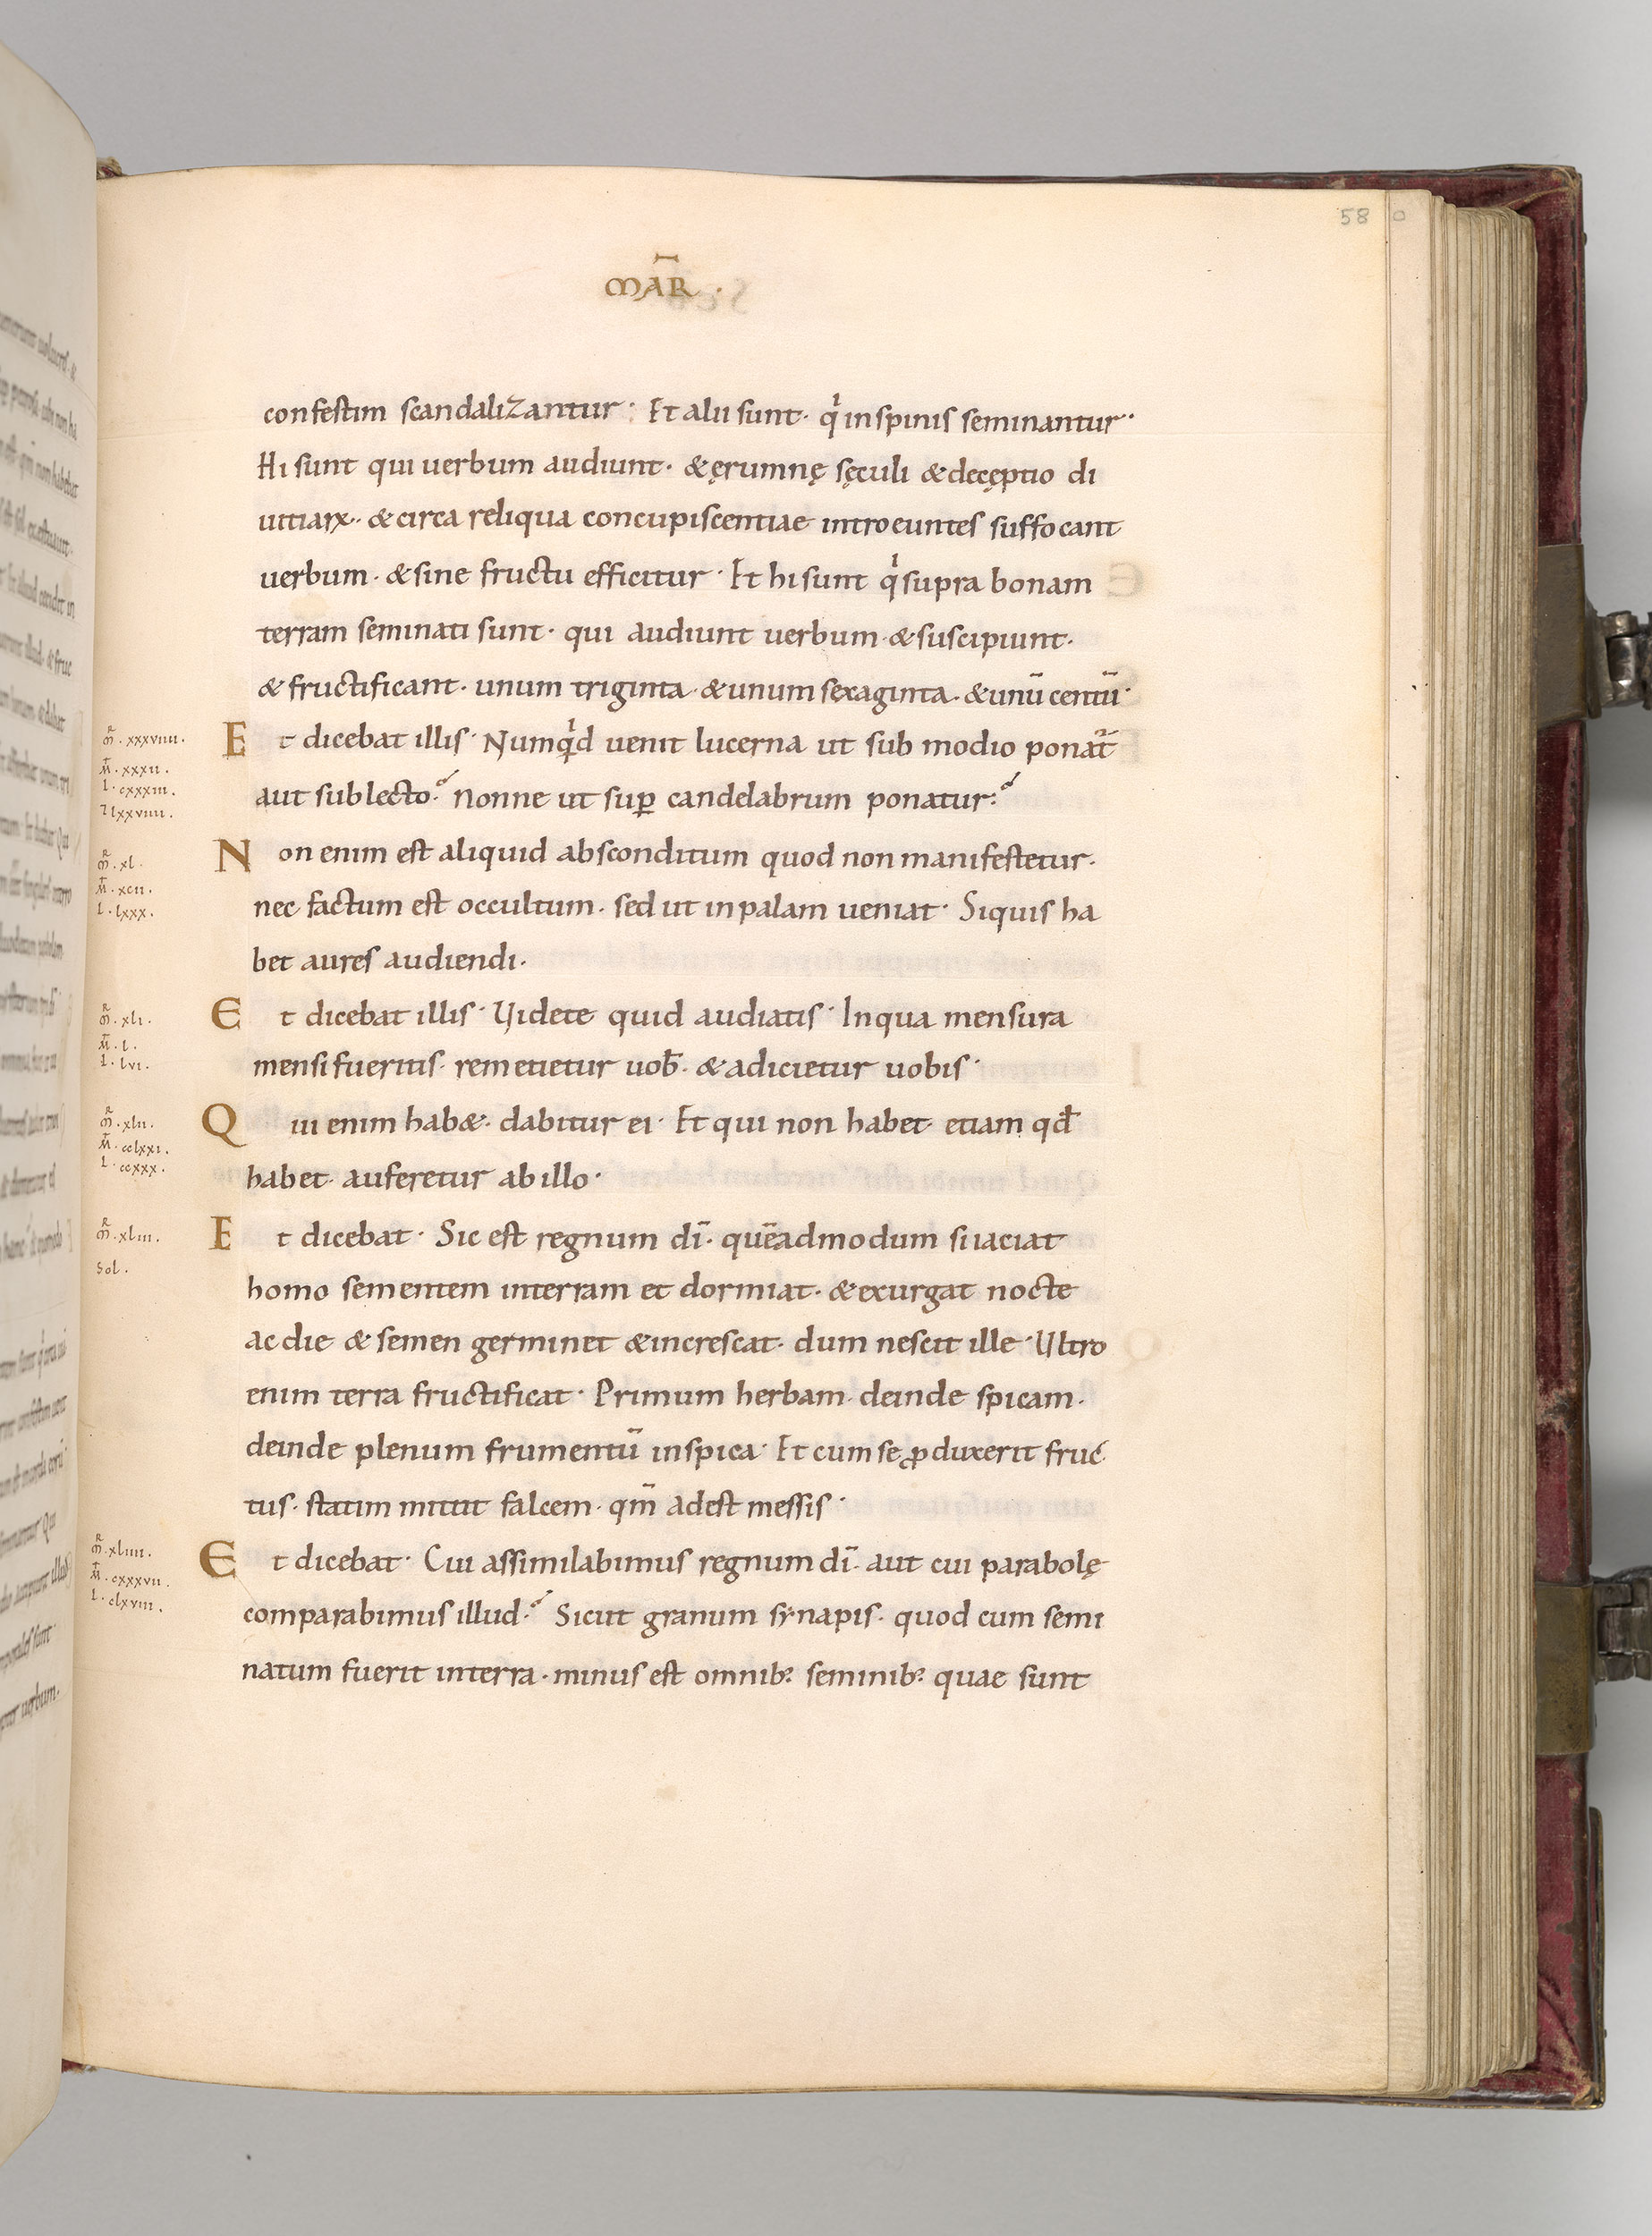 58
MAR̄ .
confestim scandalizantur· Et alii sunt· qͥ in spinis seminantur··
Hi sunt qui uerbum audiunt· & ęrumnę sęculi & decęptio di
uitiarꝝ·· & circa reliqua concupiscentiae introeuntes suffocant
uerbum· & sine fructu efficitur· Et hi sunt qͥ supra bonam
terram seminati sunt· qui audiunt uerbum· & suscipiunt·
& fructificant· unum triginta· & unum sexaginta· & unū centū·
m̊R· xxxviiii·
M̄· xxxii·
L· cxxxiii·
⁊ lxxviiii·
Et dicebat illis· Numqͥd uenit lucerna ut sub modio ponat᷑
aut sub lecto? Nonne ut suꝑ candelabrum ponatur?
mR· xl·
M̄· xcii·
L· lxxx·
Non enim est aliquid absconditum quod non manifestetur·
nec factum est occultum· sed ut in palam ueniat· Siquis ha
bet aures audiendi·
mR· xli·
M̄· l·
L· lvi·
Et dicebat illis· Uidete quid audiatis· In qua mensura
mensi fueritis· remetietur uob̄· & adicietur uobis·
mR· xlii·
M̄· cclxxi·
L· ccxxx·
Qui enim hab&· dabitur ei· Et qui non habet· etiam qd̄
habet· auferetur ab illo·
mR· xliii·
Sol·
Et dicebat· Sic est regnum dī· quēadmodum si iaciat
homo sementem in terram et dormiat· & exurgat nocte
ac die & semen germinet & increscat· dum nescit ille· Ultro
enim terra fructificat· Primum herbam· deinde spicam·
deinde plenum frumentū in spica· Et cum se ꝓduxerit fruc
tus· statim mittit falcem· qm̄ adest messis·
mR· xliiii·
M̄· cxxxvii·
L· clxviii·
Et dicebat· Cui assimilabimus regnum dī· aut cui parabolę
comparabimus illud? Sicut granum synapis· quod cum semi
natum fuerit in terra· minus est omnib; seminib; quae sunt